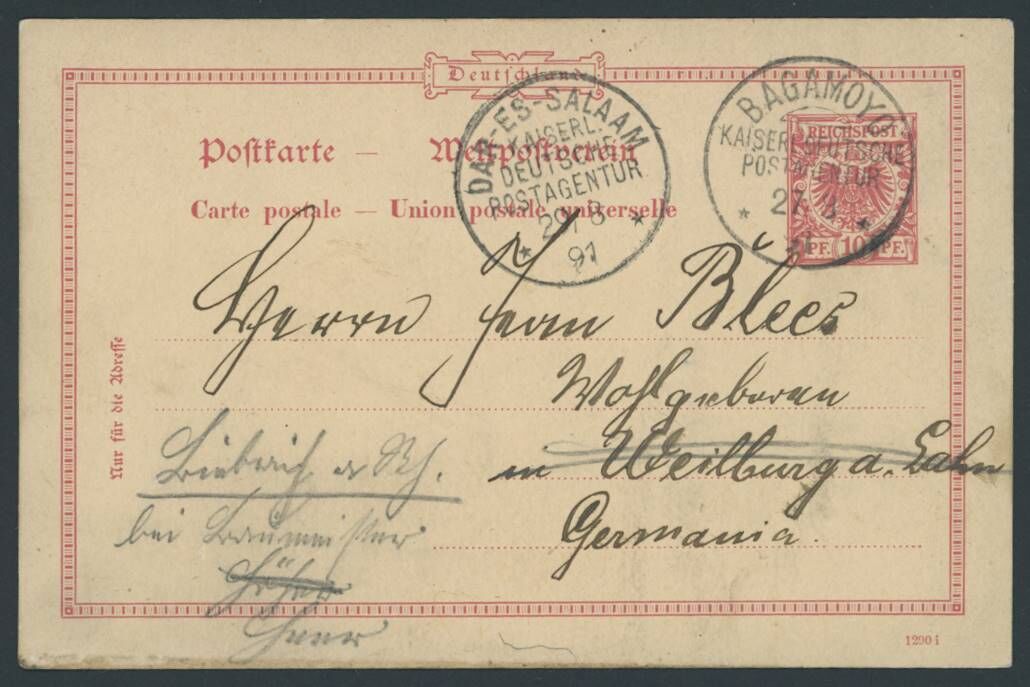 Deutschland
Postkarte — Weltpostverein
Carte postale — Union postale universelle
DAR-ES-SALAAM
KAISERL.
DEUTSCHE
POSTAGENTUR
29/8
91
BAGAMOYO
KAISERL. DEUTSCHE
POSTAGENTUR
27
REICHSPOST
PF. 10 PF.
Herrn Jean Blees
Wohlgeboren
in Weilburg a. Lahn
Germania.
Nur für die Adresse
Biebrich a Rh.
bei Baumeister
12901